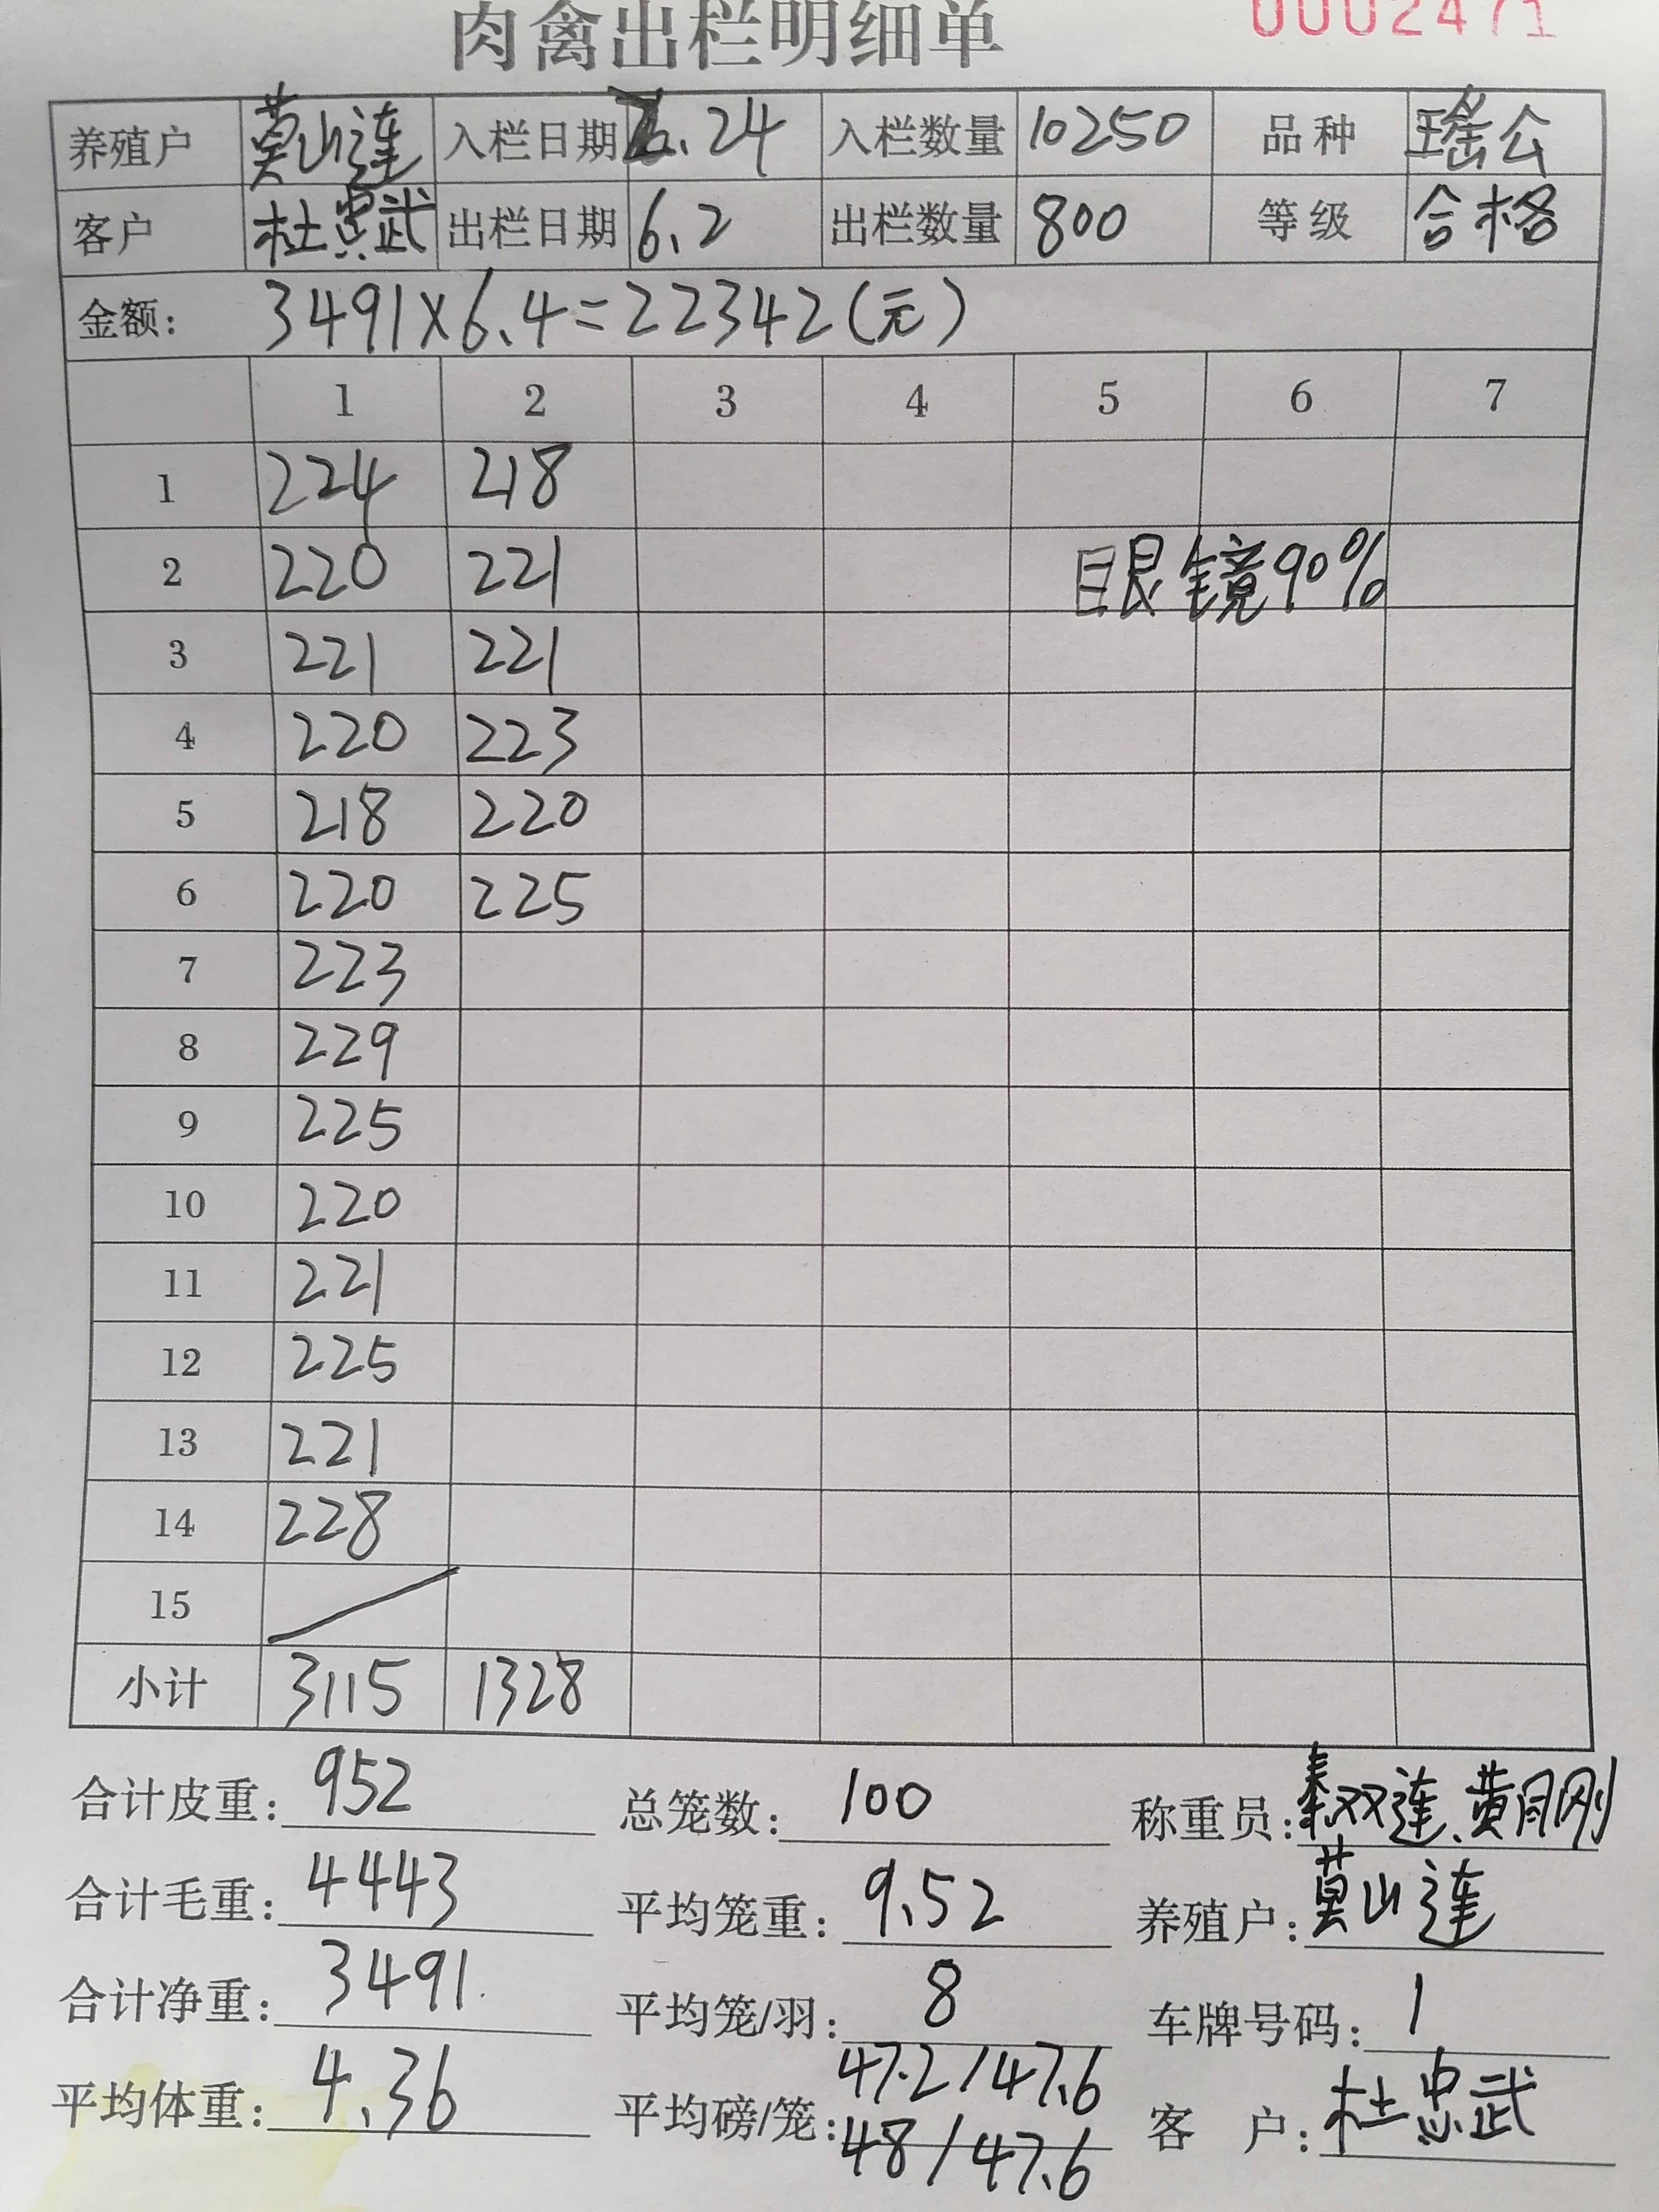 肉禽出栏明细单 0002471
养殖户 莫山连 入栏日期 .24 入栏数量 10250 品种 瑶公
客户 杜忠武 出栏日期 6.2 出栏数量 800 等级 合格
金额: 3491×6.4=22342(元)
1 2 3 4 5 6 7
1 224 218
2 220 221 眼镜90%
3 221 221
4 220 223
5 218 220
6 220 225
7 223
8 229
9 225
10 220
11 221
12 225
13 221
14 228
15
小计 3115 1328
合计皮重: 952 总笼数: 100 称重员: 秦双连、黄月刚
合计毛重: 4443 平均笼重: 9.52 养殖户: 莫山连
合计净重: 3491 平均笼/羽: 8 车牌号码: 1
平均体重: 4.36 平均磅/笼: 47.2/47.6 客户: 杜忠武
48/47.6